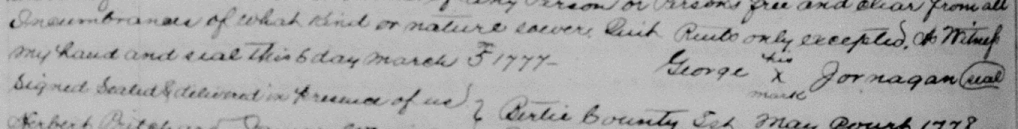 any Person or Persons free and clear from all
Incumbrances of what kind or nature soever. Quit Rents only excepted. As Witness
my hand and seal this 6 day march 1777 — George his X mark Jornagan (seal)
Signed Sealed & delivered in Presence of us)
Herbert Pritchard } Bertie County Sst May Court 1778